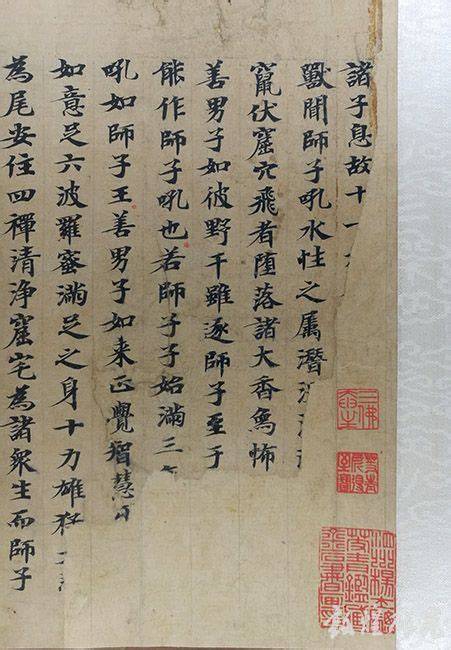 諸子息故十一
獸聞師子吼水性之属潛
竄伏窟穴飛者墮落諸大香象怖
善男子如彼野干雖逐師子至于
能作師子吼也若師子子始滿三
吼如師子王善男子如来正覺智慧
如意足六波羅蜜滿足之身十力雄
為尾安住四禪清浄窟宅為諸衆生而師子